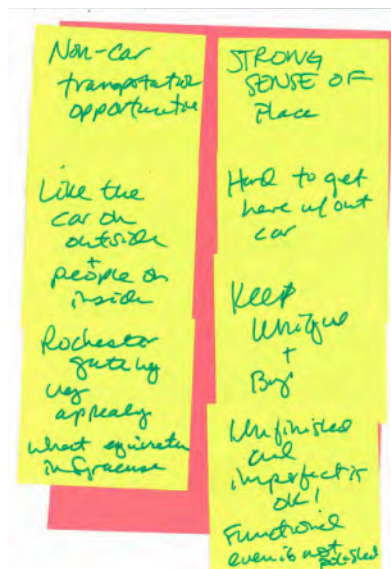 Non-car
transportation
opportunities
Like the
car on
outside
+
people on
inside
Rochester
very
what
in Syracuse
STRONG
SENSE OF
Place
Hard to get
here w/out
car
Keep
Unique
+
Unfinished
and
imperfect is
OK!
Functional
even if not polished